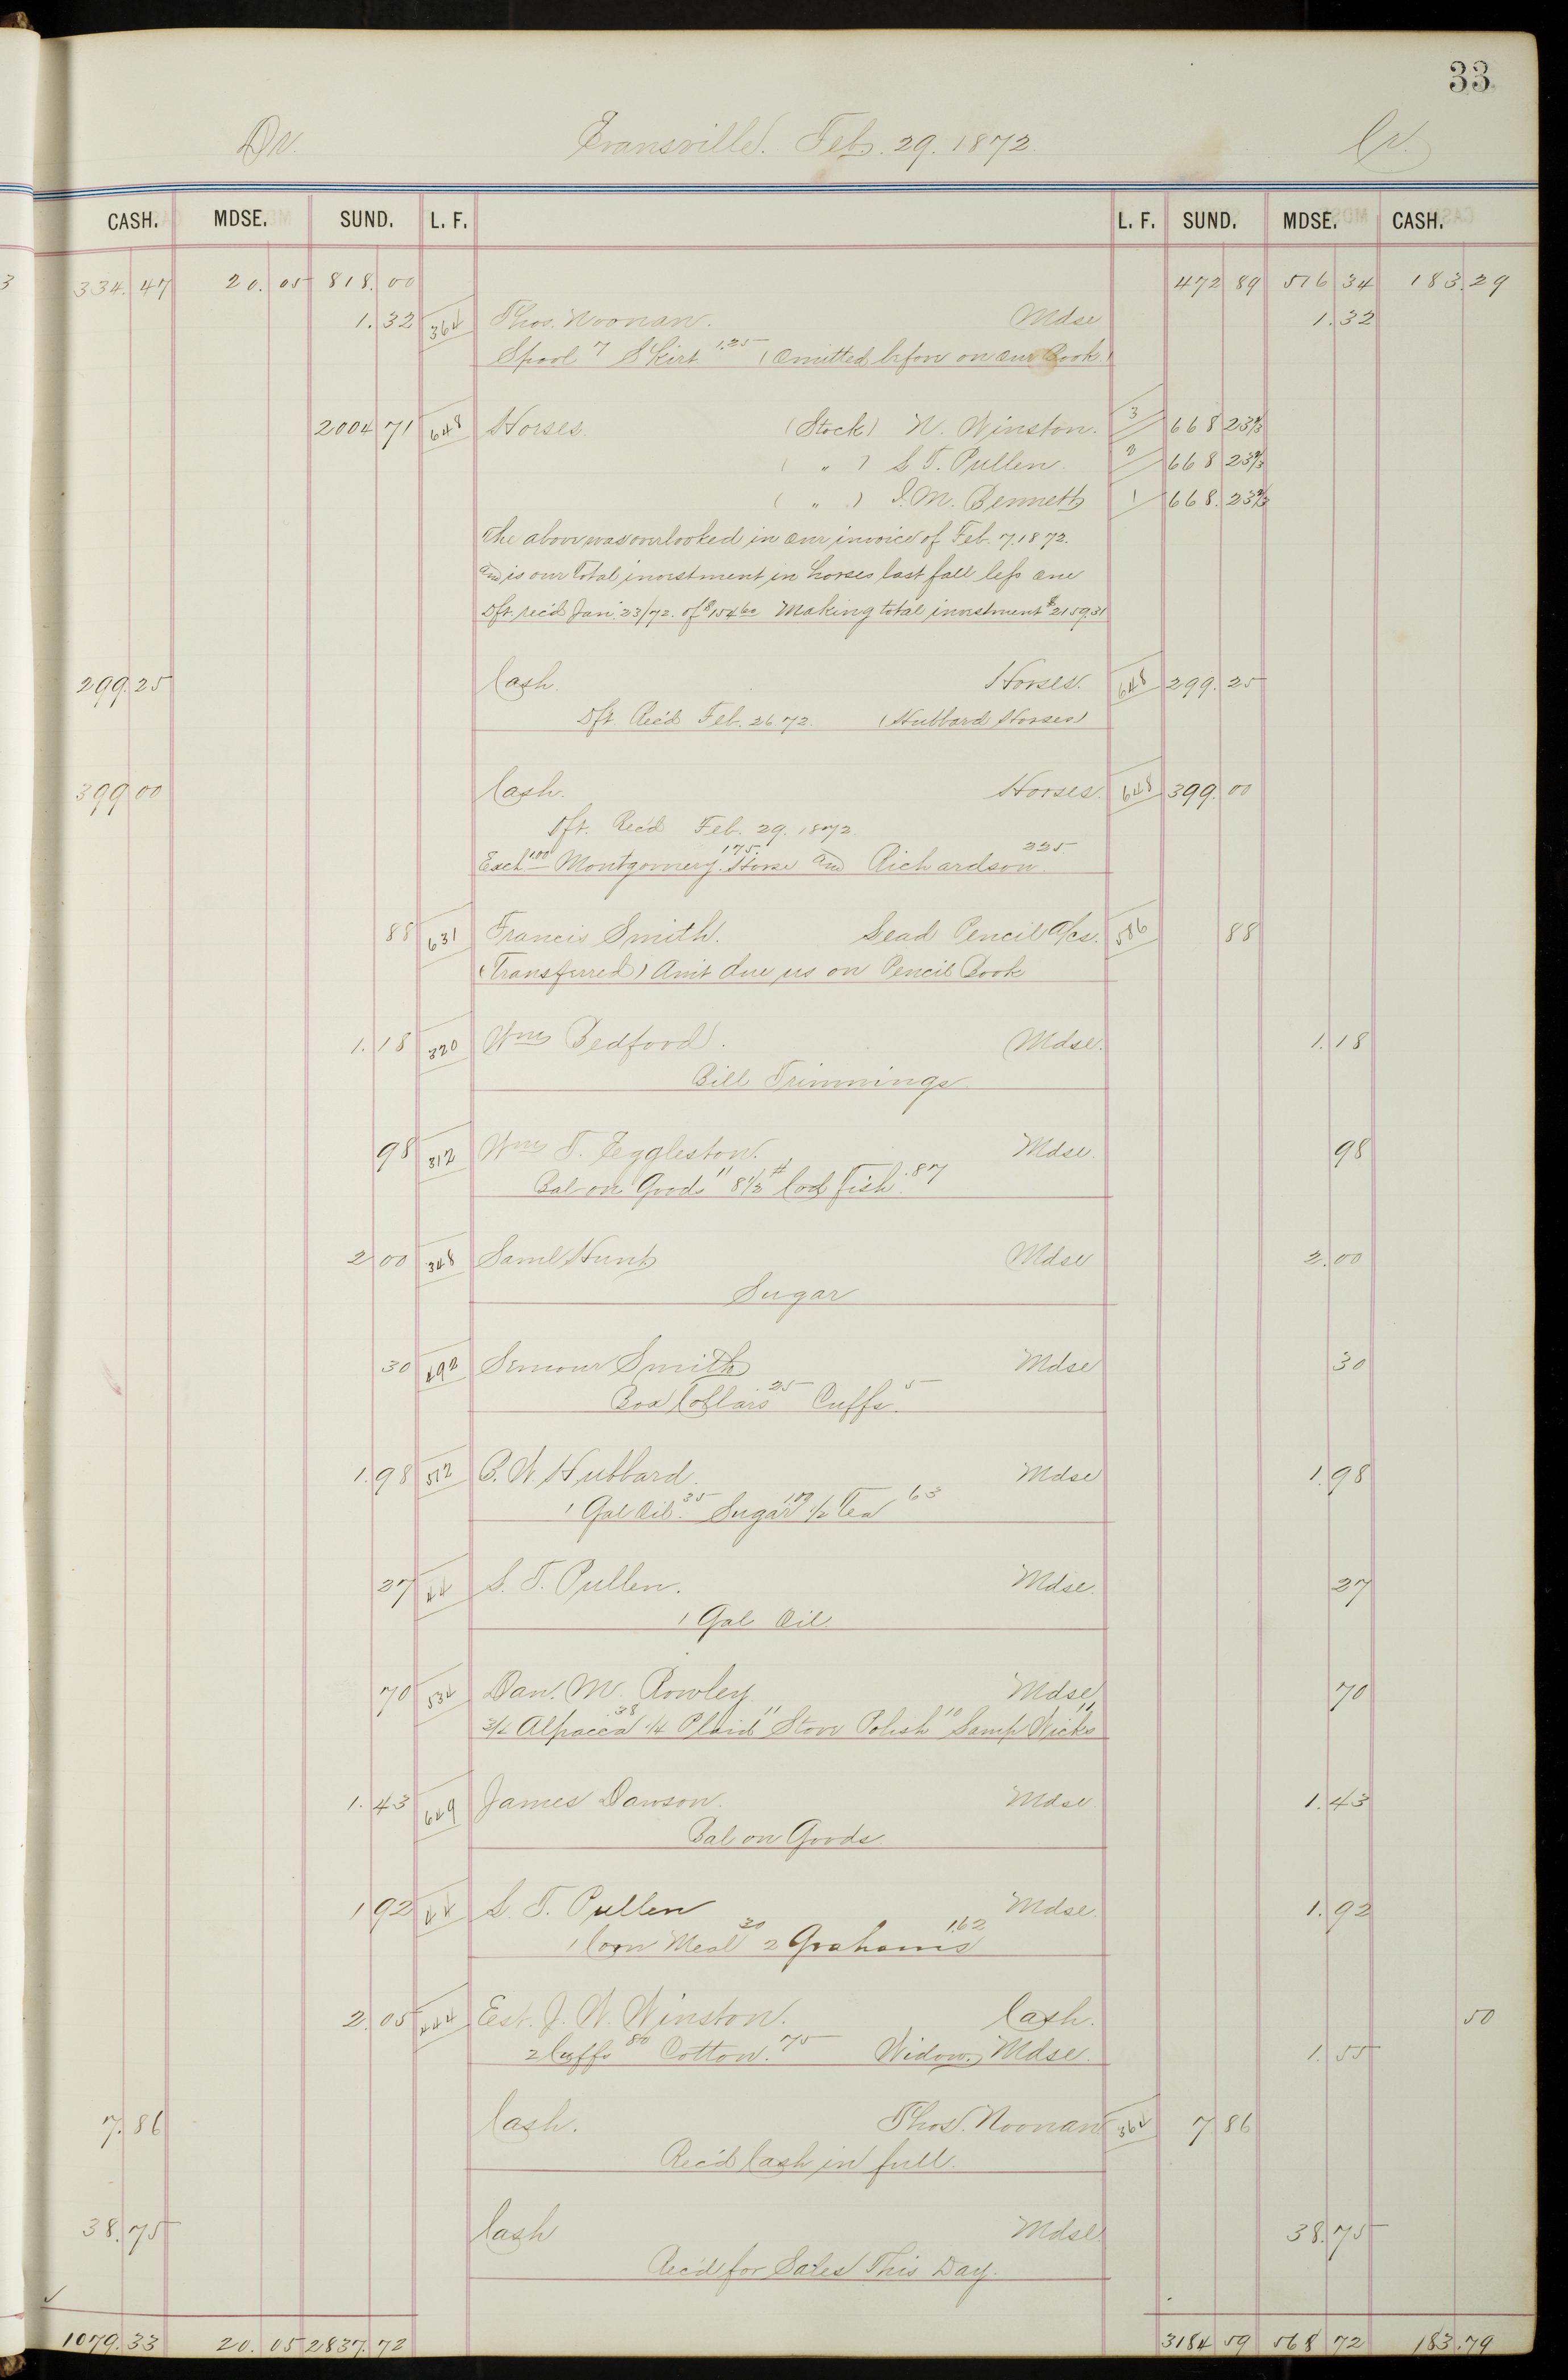 33
Dr. Evansville. Feb. 29. 1872 Cr.
CASH. MDSE. SUND. L. F. L. F. SUND. MDSE. CASH.
334.47 20.05 818.00 472 89 516 34 183.29
1.32 364 Thos. Noonan. Mdse 1.32
Spool 7 Skirt 1.25 (Omitted before on our Book)
2004 71 648 Horses. (Stock) N. Winston. 3 668 23 2/3
( " ) L. T. Pullen. 2 668 23 2/3
( " ) I. M. Bennett 1 668. 23 2/3
The above was overlooked in our invoice of Feb. 7. 1872.
and is our total investment in horses last fall less one
Dft. rec'd Jan. 23/72. of $154 60 Making total investment $2159.31
299.25 Cash. Horses. 648 299.25
Dft. Rec'd Feb. 26. 72. (Hubbard Horses)
399 00 Cash. Horses. 648 399.00
Dft. Rec'd Feb. 29. 1872
Exch 1.00 Montgomery Horse 175. and Richardson 225
88 631 Francis Smith. Lead Pencil a/cs. 586 88
(Transferred) Am't due us on Pencil Book
1.18 320 Wm Bedford. Mdse. 1.18
Bill Trimmings.
98 312 Wm T. Eggleston. Mdse. 98
Bal on Goods 11 8 1/2 # Cod Fish .87
2 00 348 Saml Hunt Mdse 2.00
Sugar
30 492 Semour Smith Mdse 30
Box Collars 25 Cuffs. 5
1.98 512 B. W. Hubbard. Mdse 1.98
1 Gal Oil. 35 Sugar 1.00 1/2 Tea 63
27 44 L. T. Pullen. Mdse. 27
1 Gal Oil.
70 534 Dan. M. Rowley Mdse 70
3/4 Alpacca .38 1/4 Plaid 11 Stove Polish 10 Lamp Wicks 11
1.43 649 James Dawson. Mdse. 1.43
Bal on Goods.
1 92 44 L. T. Pullen Mdse. 1.92
1 Corn Meal 30 2 Grahams 1.62
2.05 444 Est. J. W. Winston. Cash. 50
2 Cuffs 80 Cotton. 75 Widow. Mdse. 1.55
7.86 Cash. Thos. Noonan 364 7 86
Rec'd Cash in full.
38.75 Cash Mdse. 38.75
Rec'd for Sales This Day.
1079.33 20.05 2837.72 3184 59 568 72 183.79